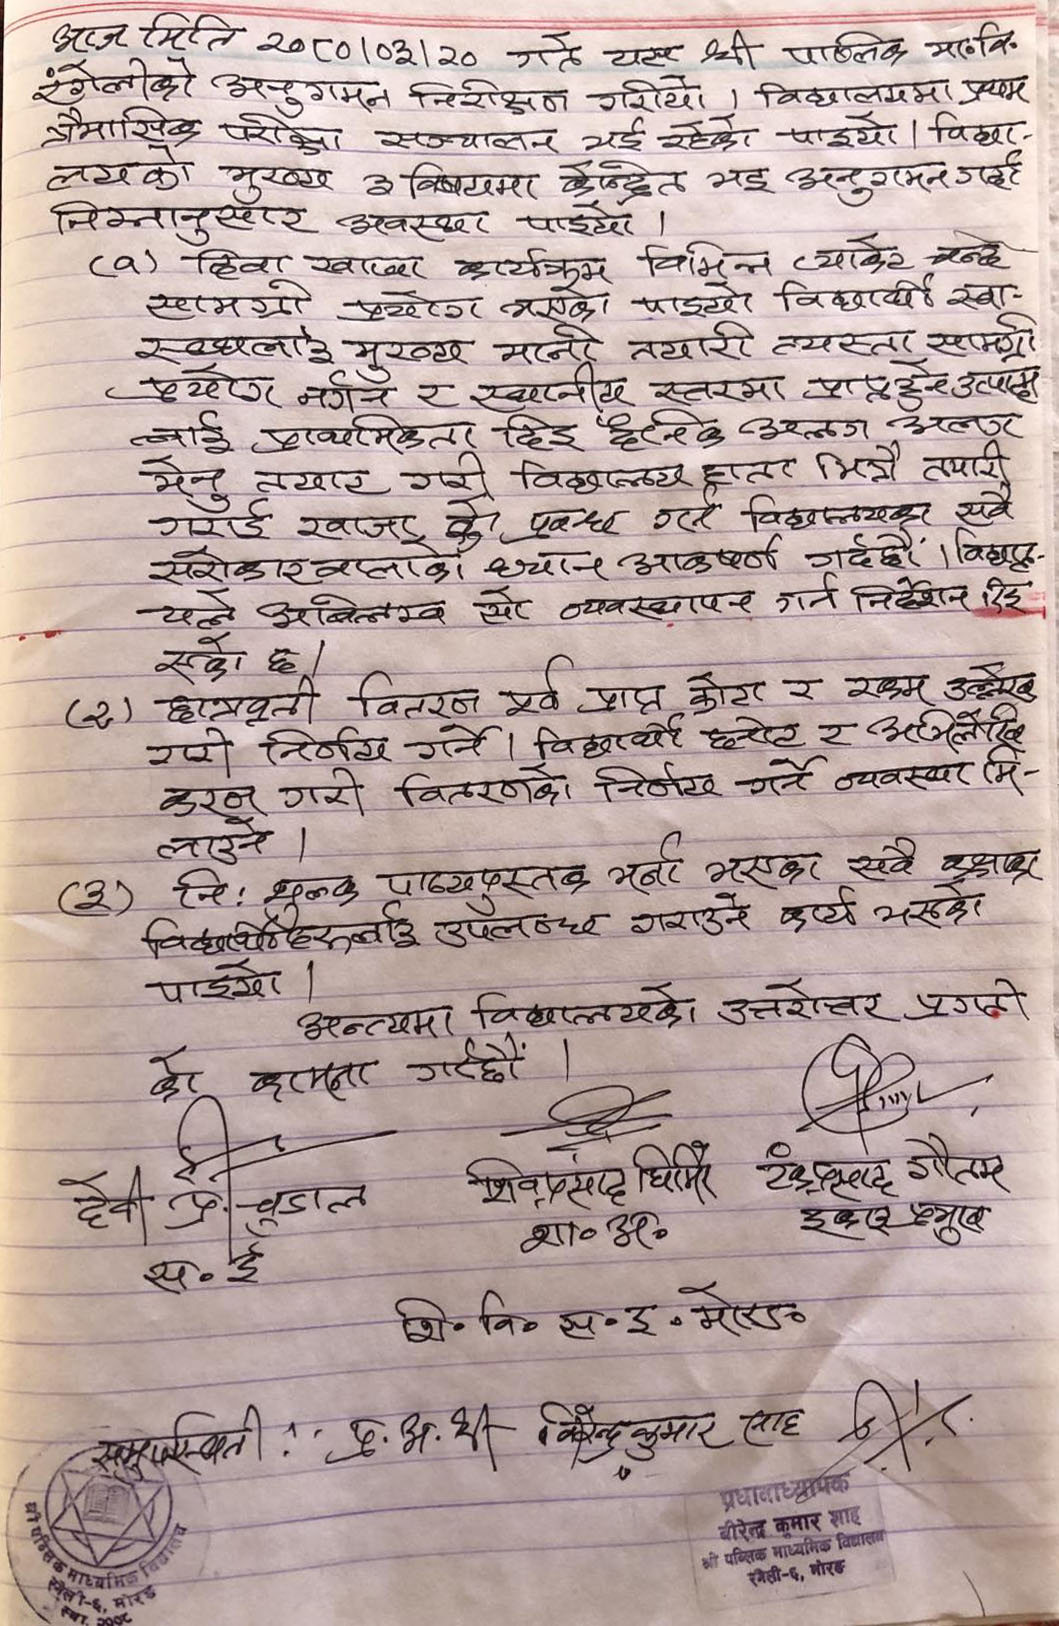 आज मिति २०८०।०३।२० गते यस श्री पब्लिक मा.वि.
रंगेलीको अनुगमन निरीक्षण गरीयो । विद्यालयमा प्रथम
त्रैमासिक परीक्षा सञ्चालन भई रहेको पाइयो । विद्या-
लयको मुख्य ३ विषयमा केन्द्रित भइ अनुगमन गर्दा
निम्नानुसार अवस्था पाइयो ।
(१) दिवा खाजा कार्यक्रम विभिन्न प्याकेट बन्द
सामग्री प्रयोग भएको पाइयो विद्यार्थी स्वा-
स्थ्यलाई मुख्य मानी तयारी त्यस्ता सामग्री
प्रयोग नगर्न र स्थानीय स्तरमा प्राप्त हुने उत्पादन
लाई प्राथमिकता दिइ दैनिक अलग अलग
मेनु तयार गरी विद्यालय हाता भित्रै तयारी
गराई खाजा को प्रबन्ध गर्न विद्यालयका सबै
सरोकारवालाको ध्यान आकर्षण गर्दछौं । विद्याल-
यले अविलम्ब सो व्यवस्थापन गर्न निर्देशन दिइ
एको छ ।
(२) छात्रवृती वितरण पूर्व प्राप्त कोटा र रकम उल्लेख
गरी निर्णय गर्ने । विद्यार्थी छनोट र अभिलेखि
करण गरी वितरणको निर्णय गर्ने व्यवस्था मि-
लाउने ।
(३) नि: शुल्क पाठ्यपुस्तक भर्ना भएका सबै कक्षाका
विद्यार्थीहरुलाई उपलब्ध गराउने कार्य भएको
पाइयो ।
अन्त्यमा विद्यालयको उत्तरोत्तर प्रगती
को कामना गर्दछौं ।
देवी प्र. चुडाल शिवप्रसाद घिमिरे टंकप्रसाद गौतम
स.ई शा.अ. इकाइ प्रमुख
शि.वि.स.इ. मोरङ
समुपस्थिती : प्र.अ. श्री विरेन्द्रकुमार साह
प्रधानाध्यापक
वीरेन्द्र कुमार शाह
श्री पब्लिक माध्यमिक विद्यालय
रंगेली-६, मोरङ
श्री पब्लिक माध्यमिक विद्यालय
रंगेली-६, मोरङ
स्था. २००८